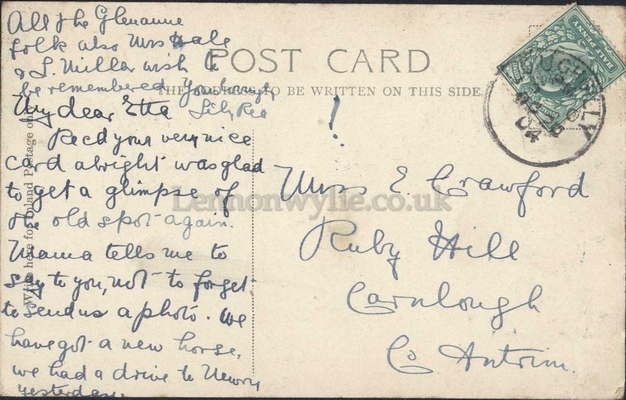 All the Glenanne
folk also Mrs Hale
& S. Miller wish to
be remembered
POST CARD
THE ADDRESS TO BE WRITTEN ON THIS SIDE.
My dear Etta
Lily Rea
Recd your very nice
card alright was glad
to get a glimpse of
the old spot again.
Mama tells me to
say to you, not to forget
to send us a photo. We
have got a new horse,
we had a drive to Newry
yesterday.
Write here for Inland Postage only
!
Miss E. Crawford
Ruby Hill
Carnlough
Co Antrim.
HALF PENNY
04
Lennonwylie.co.uk